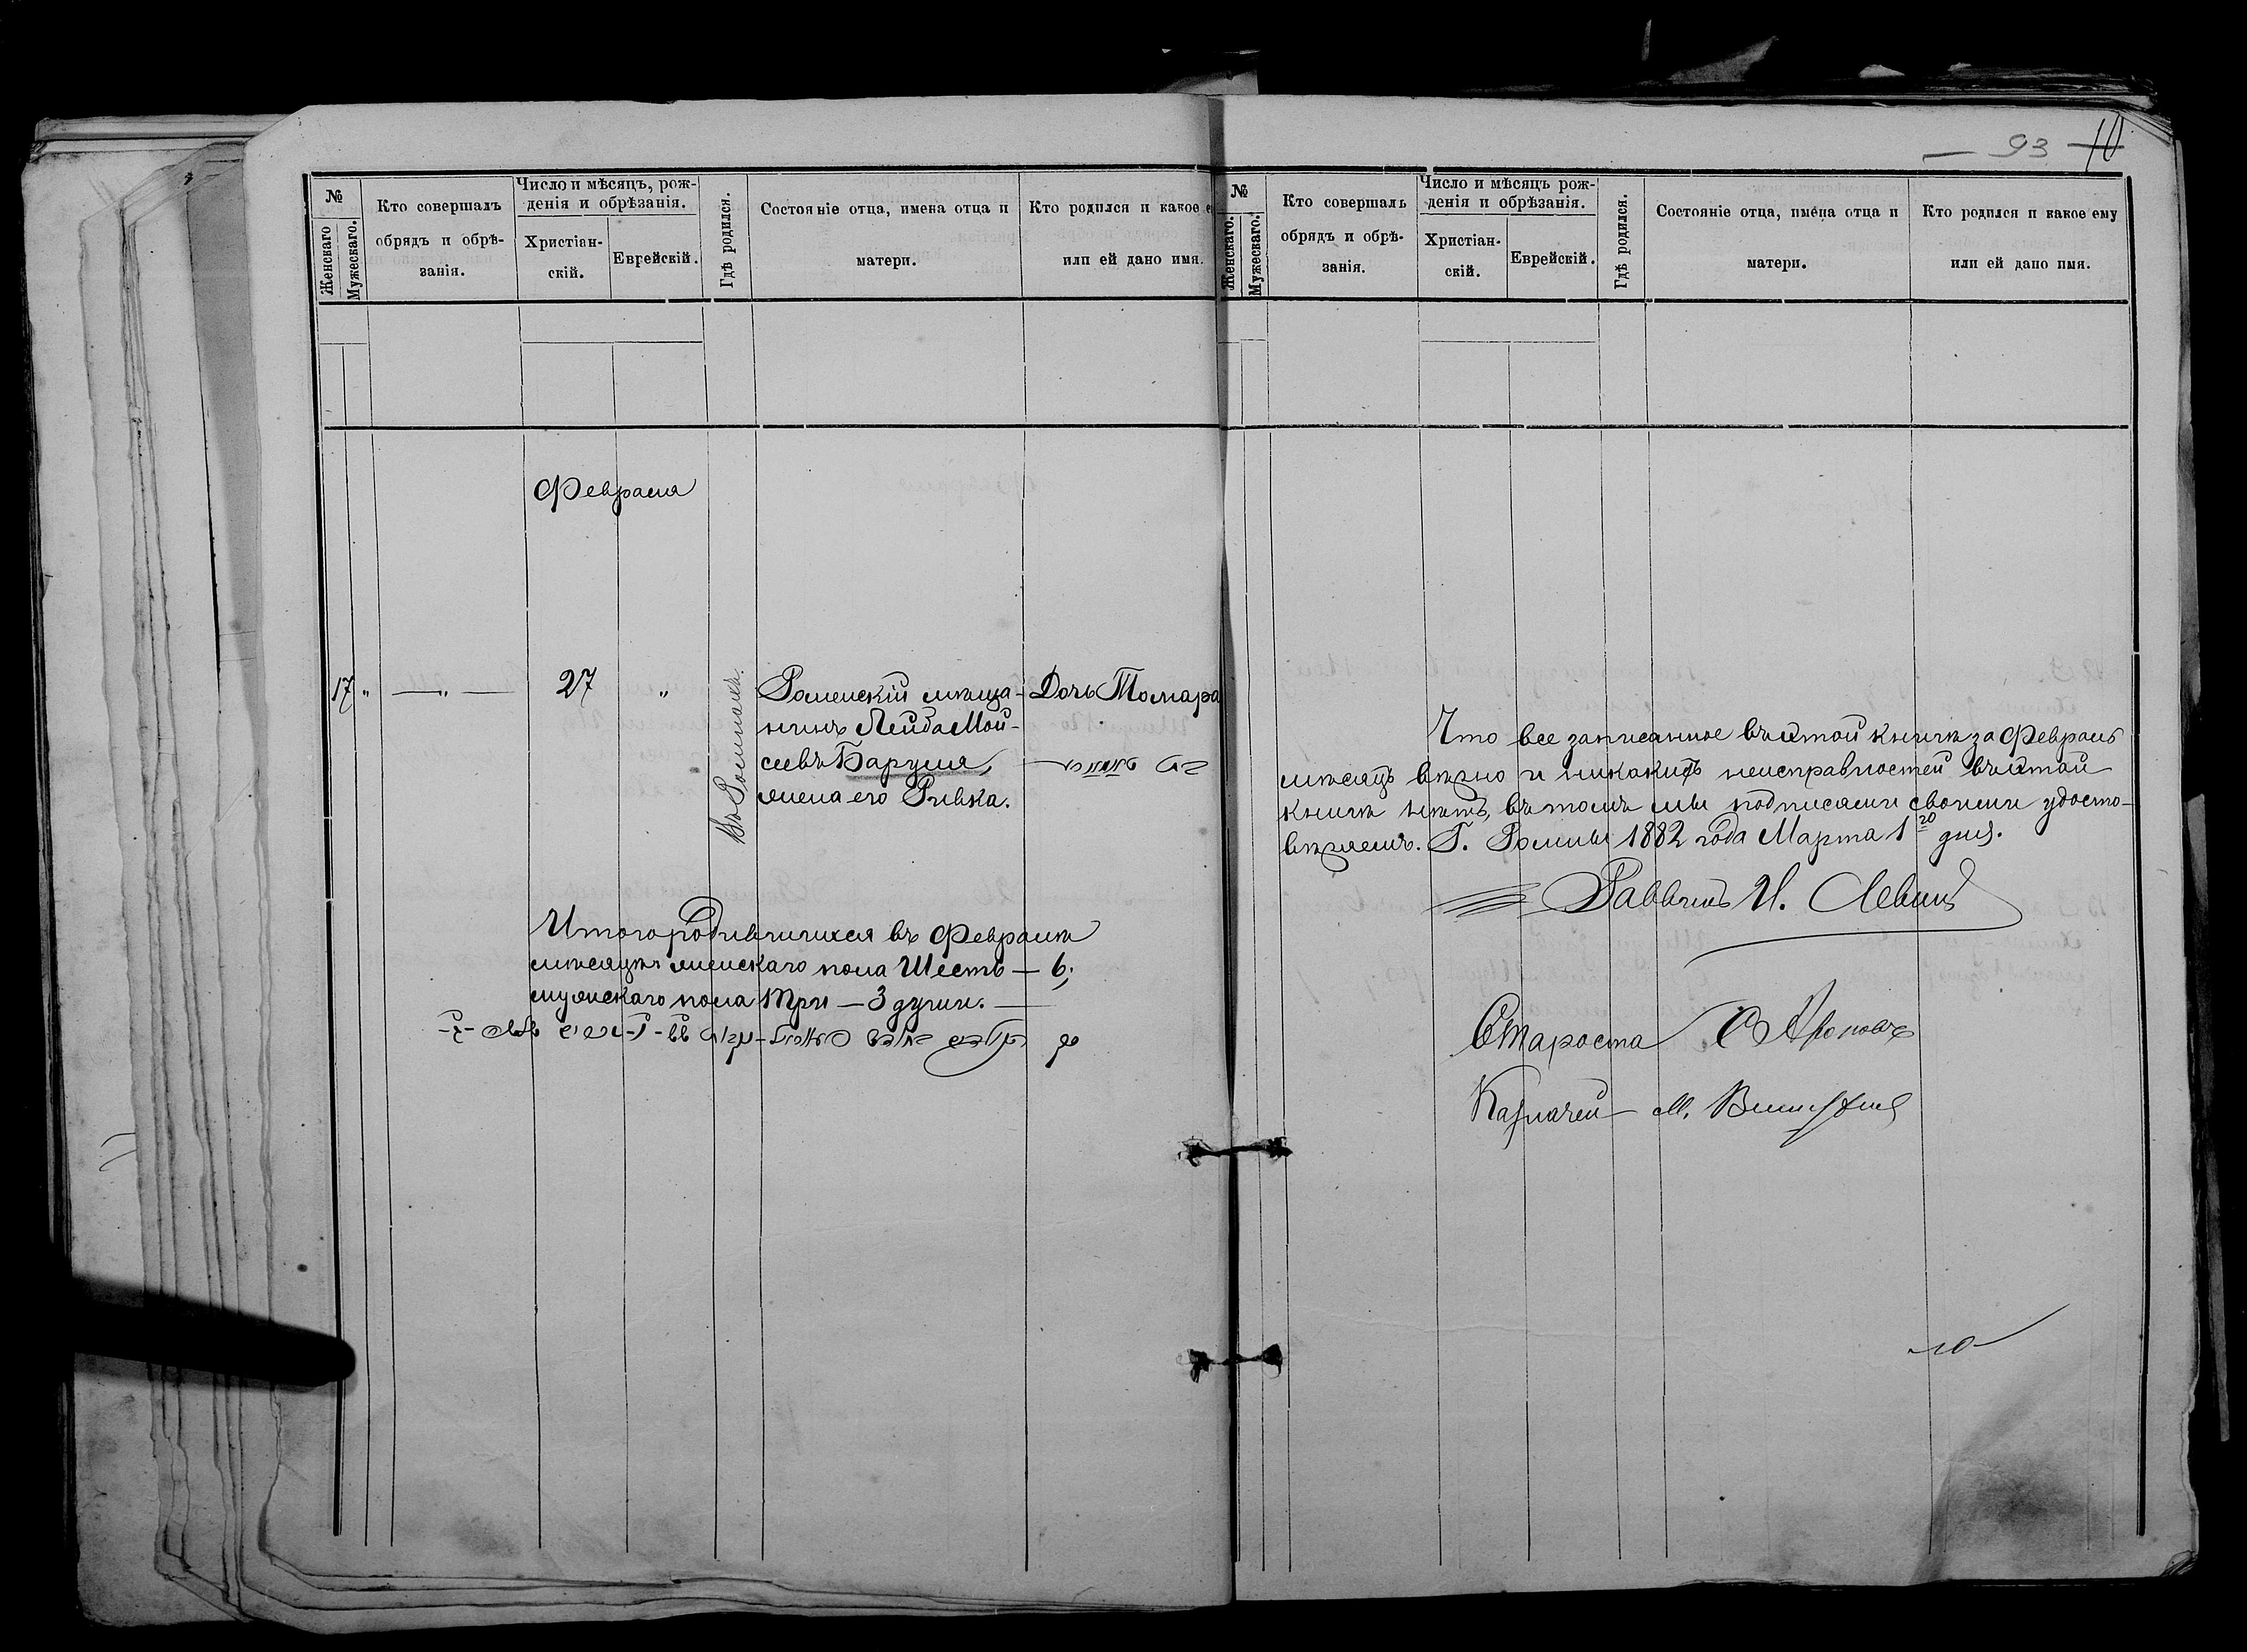 №
Женскаго
Мужескаго.
Кто совершалъ
обрядъ и обрѣ-
занія.
Число и мѣсяцъ, рож-
денія и обрѣзанія.
Христіан-
скій.
Еврейскій.
Гдѣ родился.
Состояніе отца, имена отца и
матери.
Кто родился и какое е
или ей дано имя.
Февраля
17 " —"— 27 "
Въ Ромнахъ.
Роменскій мѣща-
нинъ Лейба Мой-
сеевъ Баруля,
жена его Ривка.
Дочь Томара
Итого родившихся въ Февралѣ
мѣсяцѣ женскаго пола Шесть — 6;
мужскаго пола Три — 3 души.
— 93 10
№
Женскаго.
Мужескаго.
Кто совершалъ
обрядъ и обрѣ-
занія.
Число и мѣсяцъ рож-
денія и обрѣзанія.
Христіан-
скій.
Еврейскій.
Гдѣ родился.
Состояніе отца, имена отца и
матери.
Кто родился и какое ему
или ей дано имя.
Что все записанное въ этой книгѣ за Февраль
мѣсяцъ вѣрно и никакихъ неисправностей въ этой
книгѣ нѣтъ, въ томъ мы подписами своими удосто-
вѣряемъ. Г. Ромны 1882 года Марта 1го дня.
Раввинъ И. Левинъ
Староста С Ароновъ
Казначей М.
10